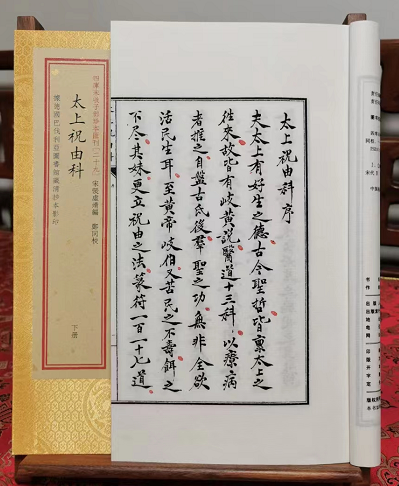 太上祝由科序
夫太上有好生之德古今聖哲皆稟太上之
徃來故皆有岐黃說醫道十三科以療病
者推之自盤古氏後羣聖之功無非全欲
活民生耳至黃帝岐伯又苦民之不壽餌之
下尽其妹更立祝由之法篆符一百一十七道
四庫未收子部珍本匯刊(二十九) 宋張虛靖編 鄭同校
太上祝由科
下册
據德國巴伐利亞圖書館藏清抄本影印